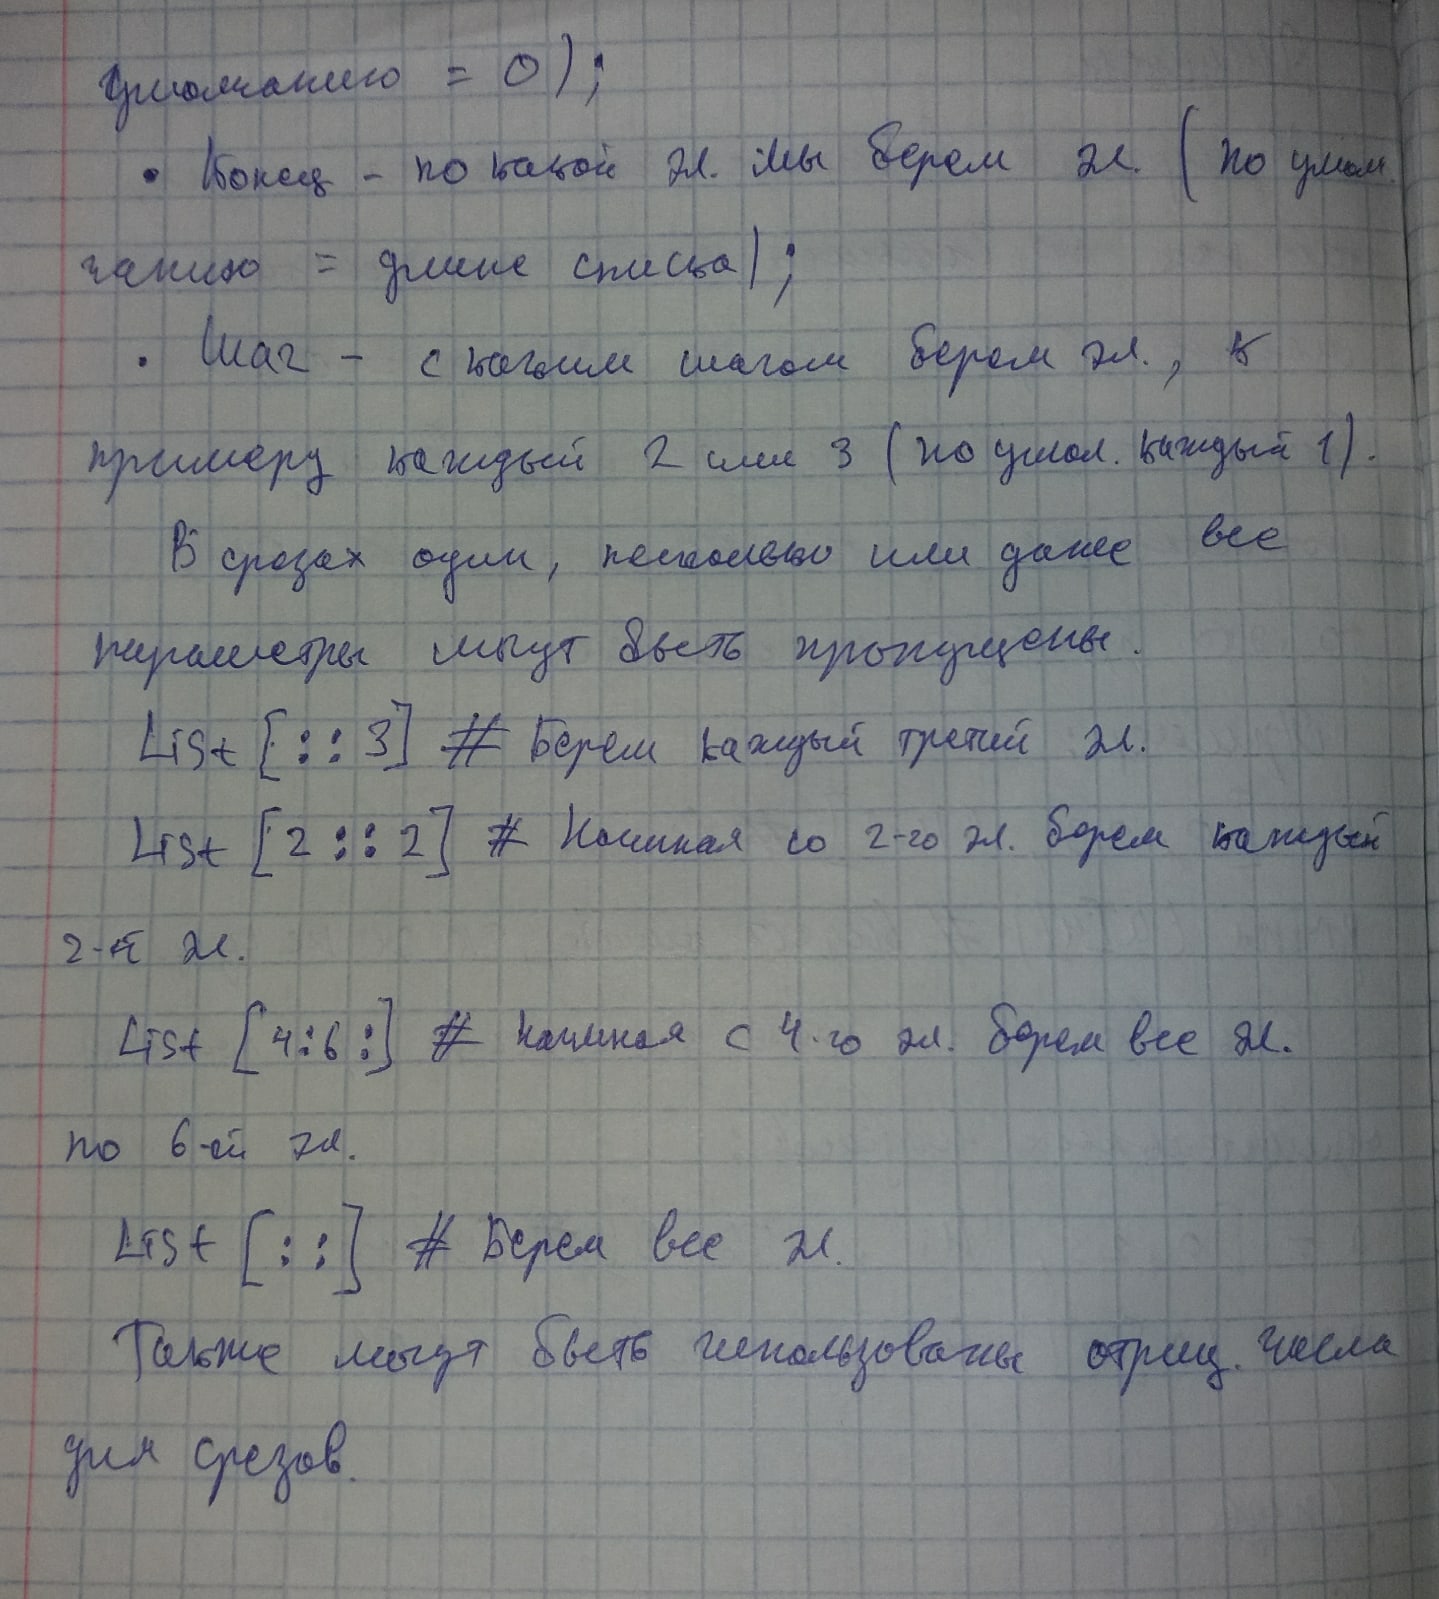 умолчанию = 0);
• Конец - по какой эл. мы берем эл. (по умол.
чанию = длине списка);
• Шаг - с каким шагом берем эл., к
примеру каждый 2 или 3 (по умол. каждый 1).
В срезах один, несколько или даже все
параметры могут быть пропущены.
List [::3] # Берем каждый третий эл.
List [2::2] # Начиная со 2-го эл. берем каждый
2-й эл.
List [4:6:] # Начиная с 4-го эл. берем все эл.
по 6-ой эл.
List [::] # Берем все эл.
Также могут быть использованы отриц. числа
для срезов.